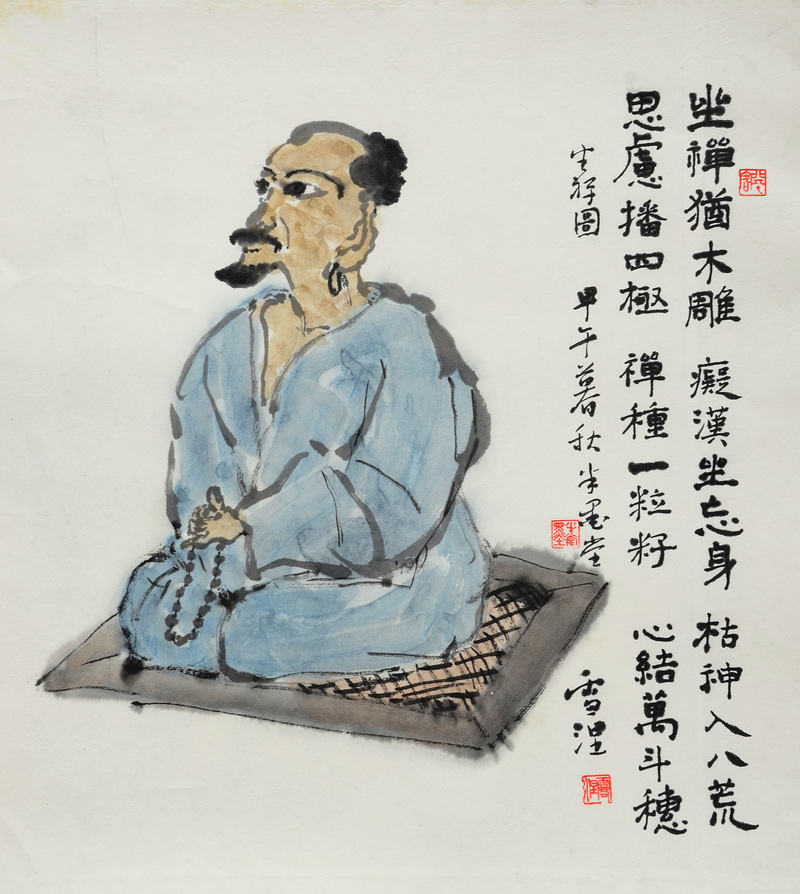 坐禪猶木雕 癡漢坐忘身 枯神入八荒
思慮播四極 禪種一粒籽 心結萬斗穗
坐禪圖 甲午暮秋半墨堂
雪涅